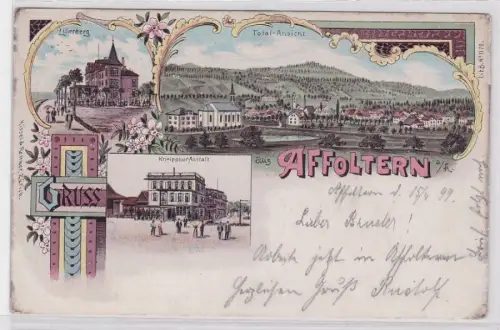 Lilienberg
Total-Ansicht
Kneippsche Anstalt
GRUSS
aus
AFFOLTERN a/A.
Affoltern d. 15/4 99
Lieber Bruder!
Arbeite jetzt in Affoltern
Herzlichen Gruß Rudolf